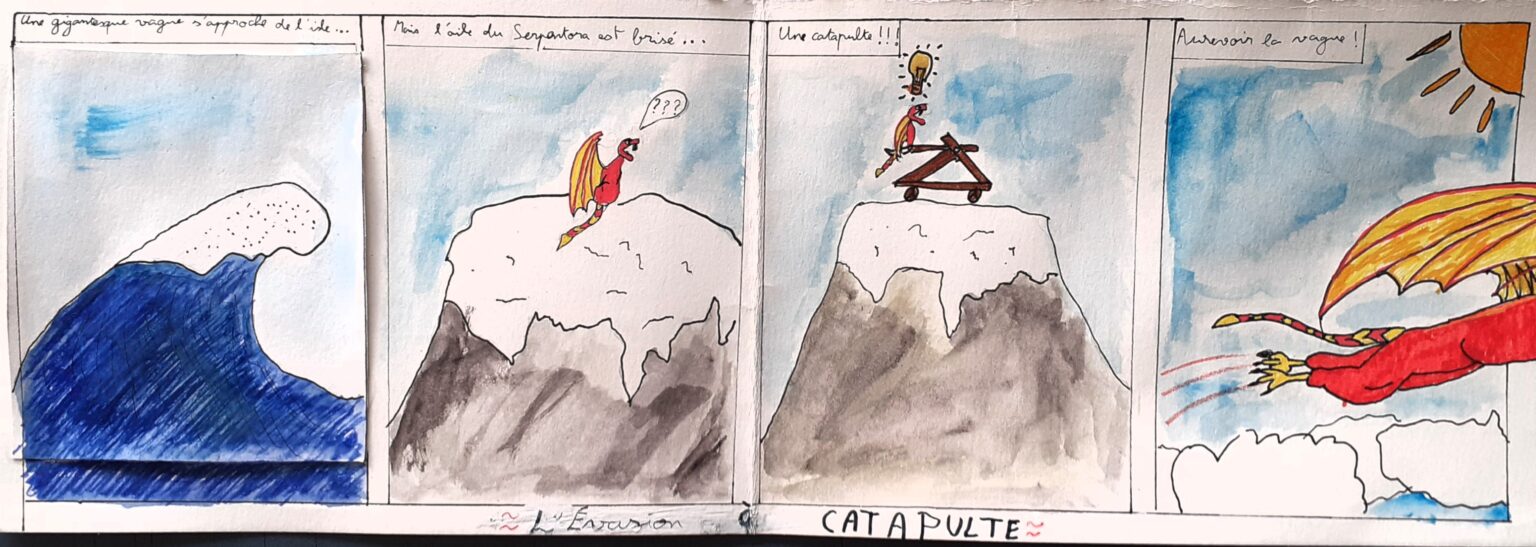 Une gigantesque vague s'approche de l'isle...
Mais l'aile du Serpentora est brisé...
???
Une catapulte !!!
Aurevoir la vague !
≈ L'Évasion
CATAPULTE ≈